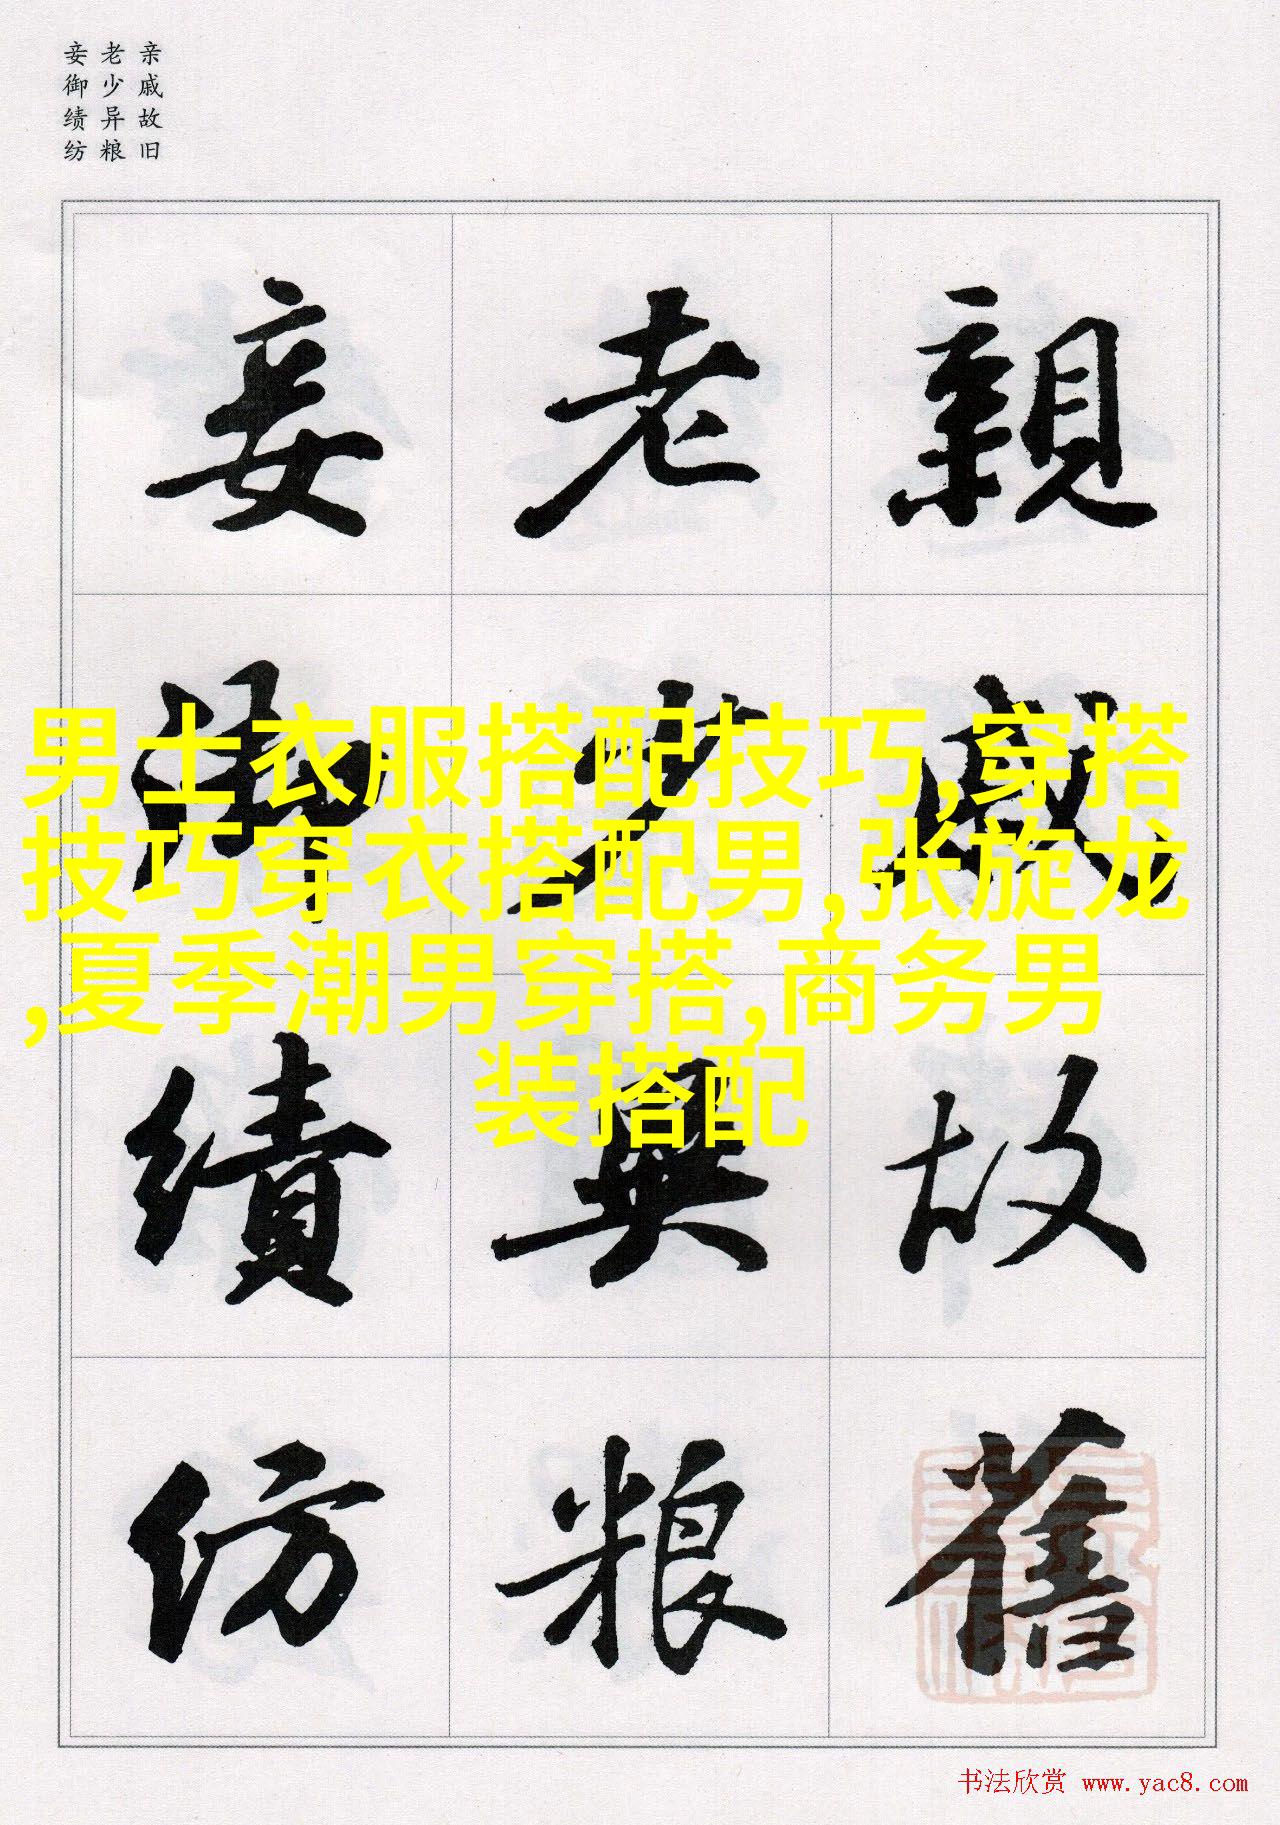 亲戚故旧
老少异粮
妾御绩纺
親戚故舊
老少異粮
妾御績紡
男士衣服搭配技巧,穿搭
技巧穿衣搭配男,张旋龙
,夏季潮男穿搭,商务男
装搭配
书法欣赏 www.yac8.com